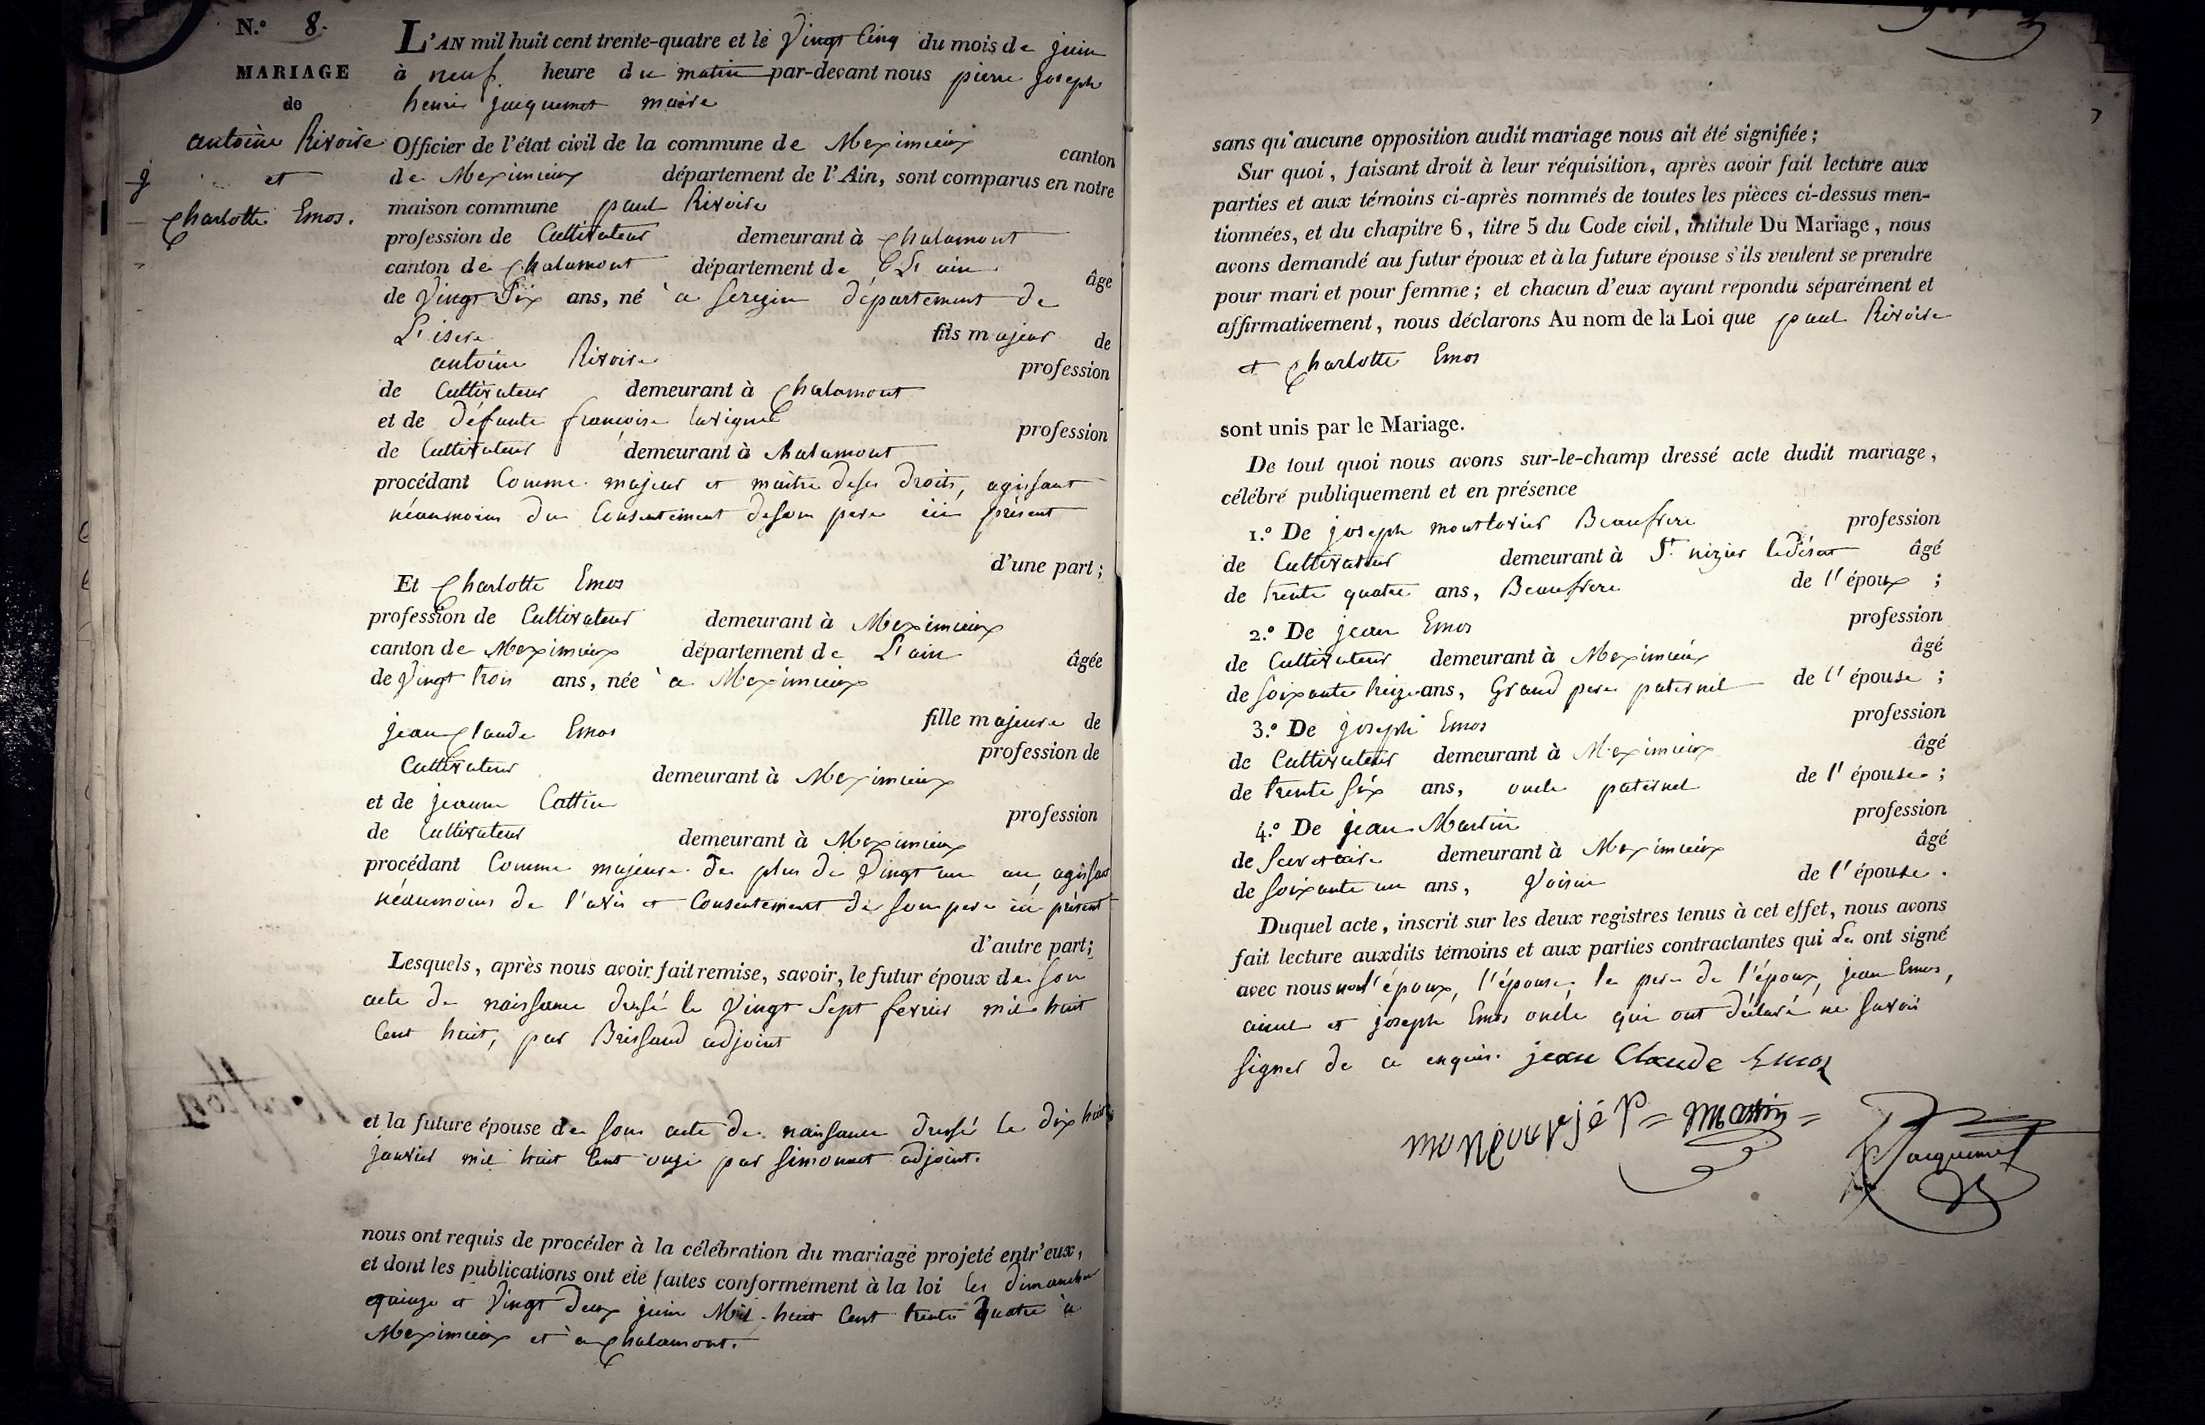 N.º 8.
MARIAGE
de
antoine Rivoire
et
Charlotte Emos.
L'AN mil huit cent trente-quatre et le Vingt Cinq du mois de juin
à neuf heure du matin par-devant nous pierre joseph
henri jacquemet maire
Officier de l'état civil de la commune de Meximieux canton
de Meximieux département de l'Ain, sont comparus en notre
maison commune paul Rivoire
profession de Cultivateur demeurant à Chalamont
canton de Chalamont département de L'ain âgé
de Vingt Six ans, né à a serezin département de
L'isere fils majeur de
antoine Rivoire profession
de Cultivateur demeurant à Chalamont
et de défunte francoise lavigne profession
de Cultivateur demeurant à Chalamont
procédant Comme majeur et maitre deses droits, agissant
néanmoins du Consentement deson pere ici présent
d'une part;
Et Charlotte Emos
profession de Cultivateur demeurant à Meximieux
canton de Meximieux département de L'ain âgée
de Vingt trois ans, née à Meximieux
fille majeure de
jean Claude Emos profession de
Cultivateur demeurant à Meximieux
et de jeanne Cattin profession
de Cultivateur demeurant à Meximieux
procédant Comme majeure de plus de Vingt un an, agissant
néanmoins de l'avis et Consentement de son pere ici présent
d'autre part;
Lesquels, après nous avoir fait remise, savoir, le futur époux de son
acte de naissance dressé le Vingt Sept fevrier mil huit
Cent huit, par Brissaud adjoint
et la future épouse de son acte de naissance dressé le dix huit
janvier mil huit Cent onze par simonnet adjoint.
nous ont requis de procéder à la célébration du mariage projeté entr'eux,
et dont les publications ont été faites conformément à la loi les dimanches
quinze et Vingt deux juin Mil huit Cent trente quatre à
Meximieux et à Chalamont.
sans qu'aucune opposition audit mariage nous ait été signifiée;
Sur quoi, faisant droit à leur réquisition, après avoir fait lecture aux
parties et aux témoins ci-après nommés de toutes les pièces ci-dessus men-
tionnées, et du chapitre 6, titre 5 du Code civil, intitulé Du Mariage, nous
avons demandé au futur époux et à la future épouse s'ils veulent se prendre
pour mari et pour femme; et chacun d'eux ayant répondu séparément et
affirmativement, nous déclarons Au nom de la Loi que paul Rivoire
et Charlotte Emos
sont unis par le Mariage.
De tout quoi nous avons sur-le-champ dressé acte dudit mariage,
célébré publiquement et en présence
1.º De joseph Beaufrere profession
de Cultivateur demeurant à St. nizier le désert âgé
de trente quatre ans, Beaufrere de l'époux;
2.º De jean Emos profession
de Cultivateur demeurant à Meximieux âgé
de soixante treize ans, Grand pere paternel de l'épouse;
3.º De joseph Emos profession
de Cultivateur demeurant à Meximieux âgé
de trente Six ans, oncle paternel de l'épouse;
4.º De jean Martin profession
de Secretaire demeurant à Meximieux âgé
de soixante un ans, Voisin de l'épouse.
Duquel acte, inscrit sur les deux registres tenus à cet effet, nous avons
fait lecture auxdits témoins et aux parties contractantes qui ont signé
avec nous non l'époux, l'épouse, le pere de l'époux, jean Emos,
aieul et joseph Emos oncle qui ont déclaré ne savoir
signer de ce enquis. jean Claude Emos
Martin
Jacquemet